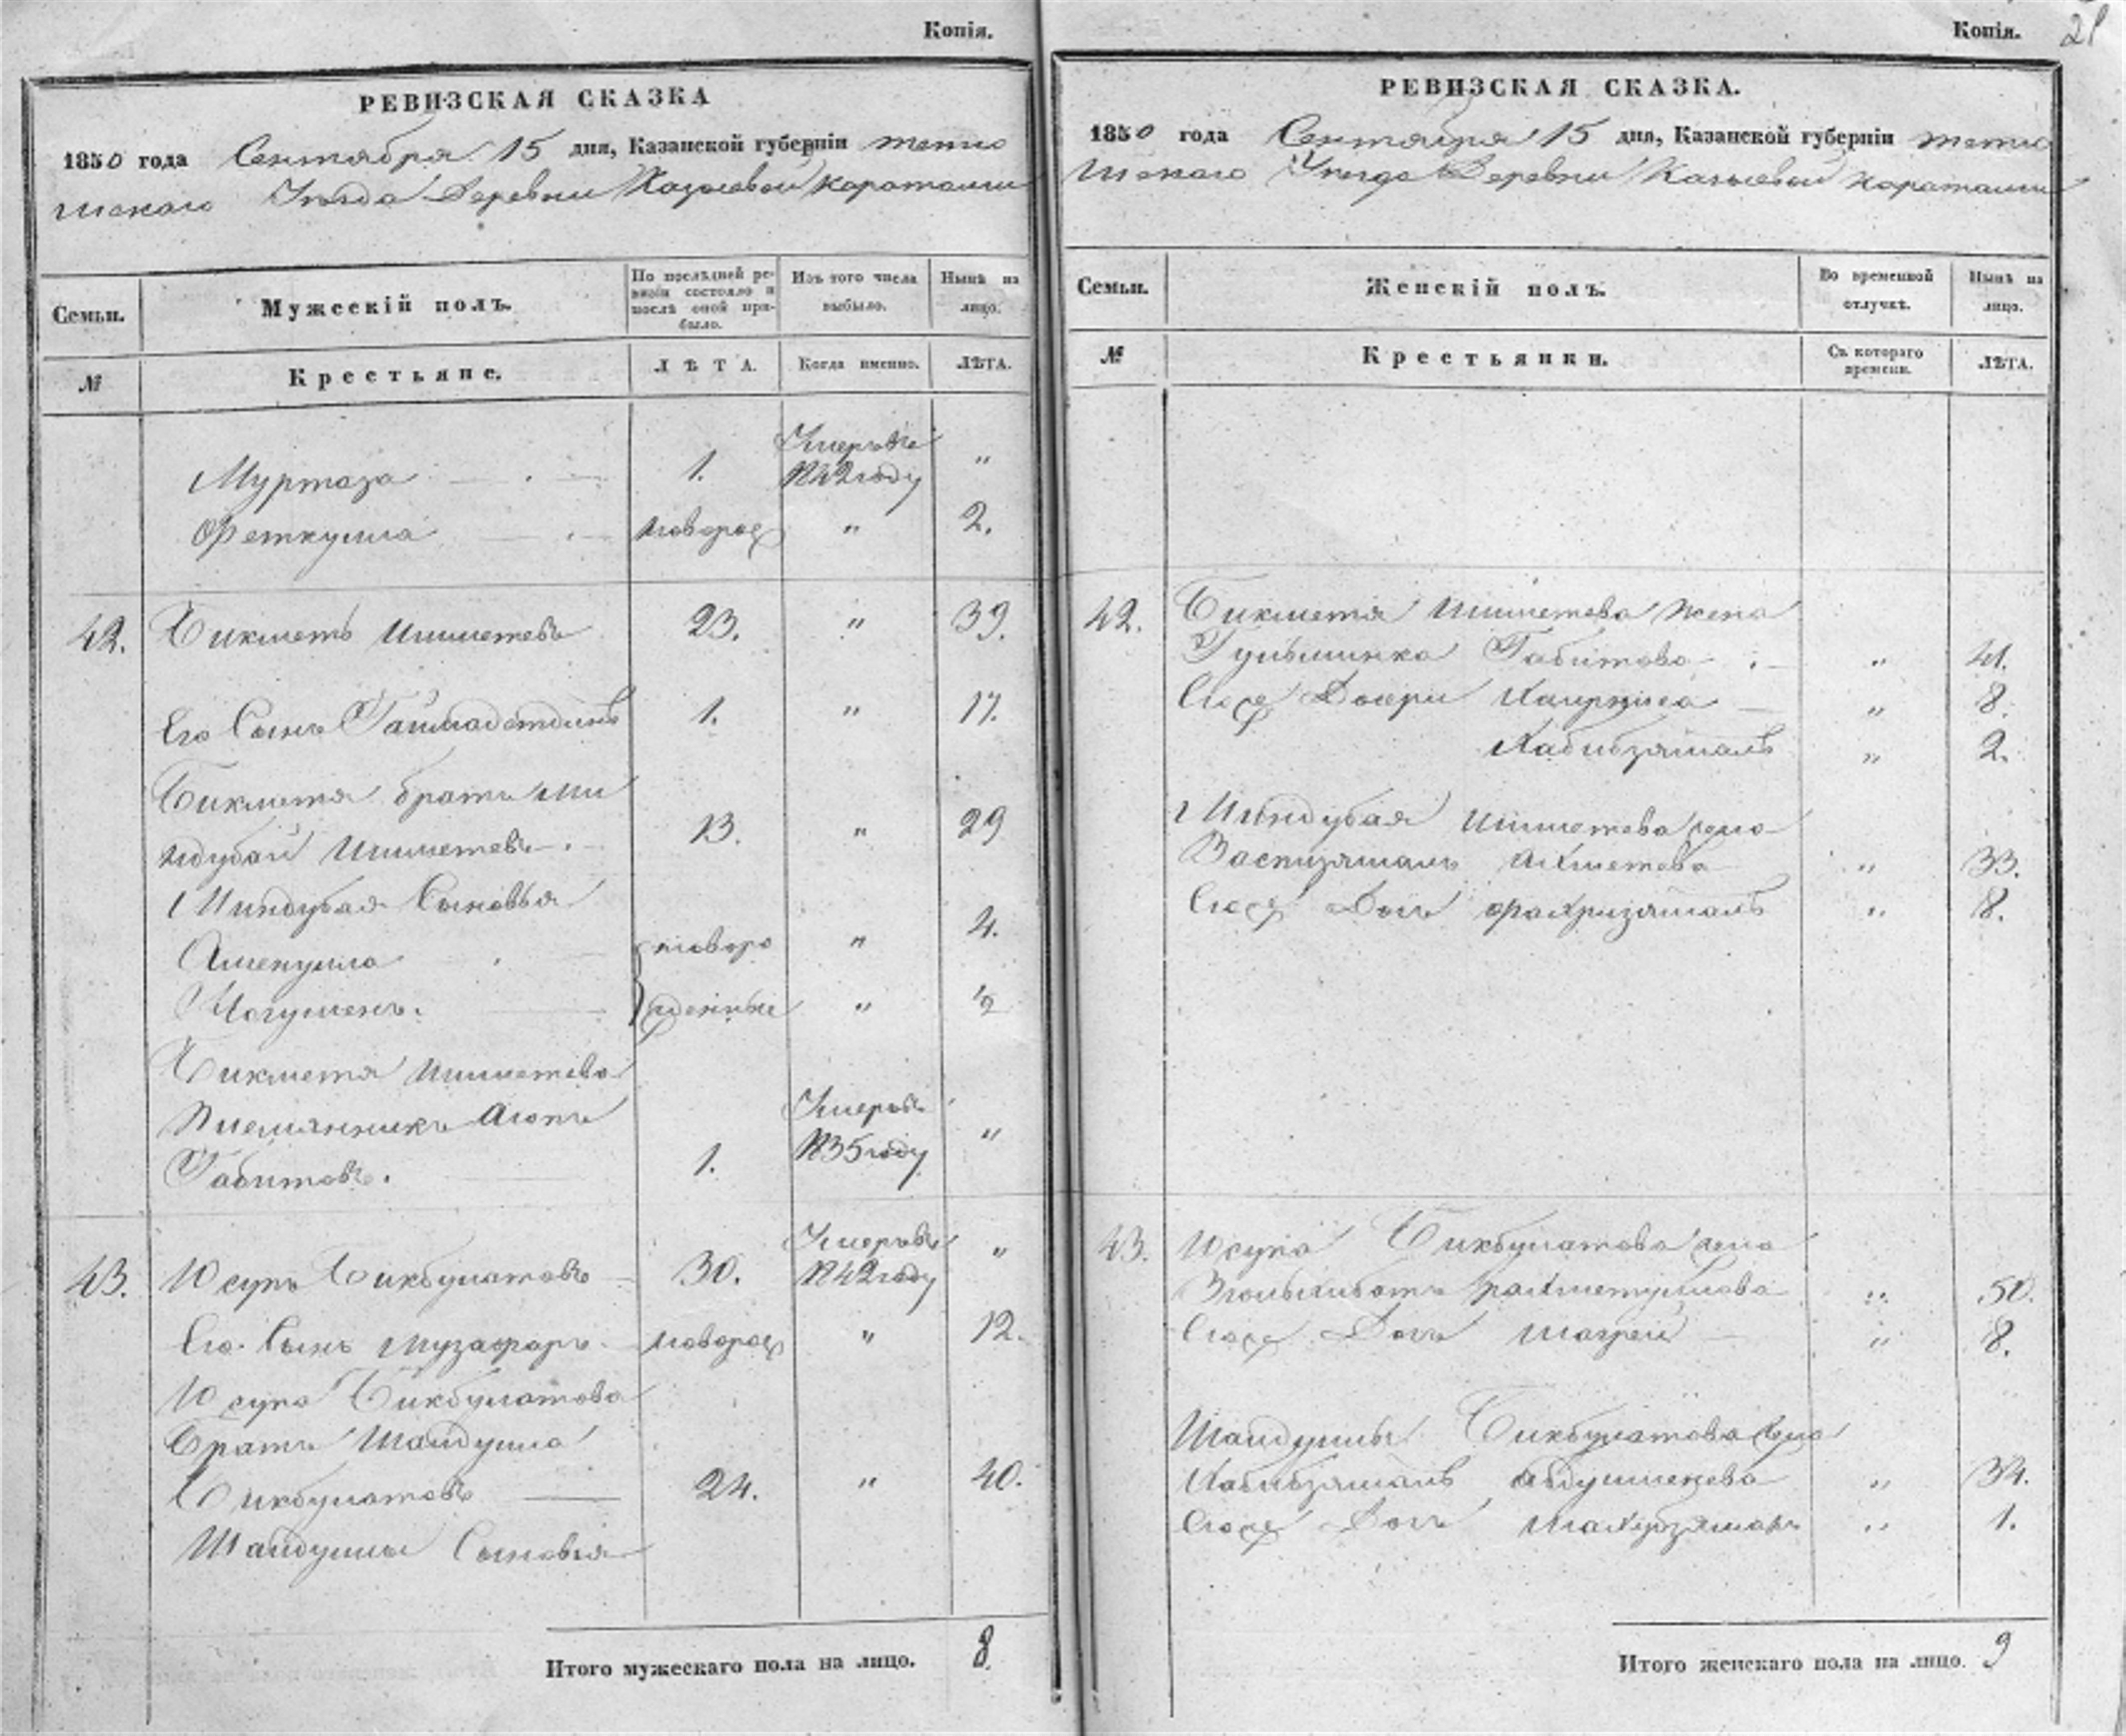 Копія.
РЕВИЗСКАЯ СКАЗКА
1850 года Сентября 15 дня, Казанской губерніи тетю
шскаго Уѣзда Деревни Караташи
Семьи.
Мужескій полъ.
По послѣдней ре-
визіи состояло и
послѣ оной при-
было.
Изъ того числа
выбыло.
Нынѣ на
лицо.
№
Крестьяне.
ЛѢТА.
Когда именно.
ЛѢТА.
Муртаза 1. Умеръ въ 1842 году "
Феткулла новорож " 2.
42. Бикметь Ишметевъ 23. " 39.
Его Сынъ 1. " 17.
Бикметя братъ Ми
ндубай Ишметевъ 13. " 29
Миндубая Сыновья
новоро " 4.
жденные " ½
Бикметя Ишметева
Племянникъ Аюпъ
Габитовъ. 1. Умеръ въ 1835 году "
43. Юсупъ Бикбулатовъ 30. Умеръ въ 1842 году "
Его Сынъ Музафаръ новорож " 12.
Юсупа Бикбулатова
Братъ Шандулла
Бикбулатовъ 24. " 40.
Шандуллы Сыновья
Итого мужескаго пола на лицо. 8.
Копія.
21
РЕВИЗСКАЯ СКАЗКА.
1850 года Сентября 15 дня, Казанской губерніи тетю
шскаго Уѣзда Деревни Караташи
Семьи.
Женскій полъ.
Во временной
отлучкѣ.
Нынѣ на
лицо.
№
Крестьянки.
Съ котораго
времени.
ЛѢТА.
42. Бикметя Ишметева жена
Габитова " 41.
Ея Дочери " 8.
Хабибзямалъ " 2.
Миндубая Ишметева жена
Ахметева " 33.
Ея Дочь Фахризямалъ " 8.
43. Юсупа Бикбулатова жена
Рахметуллова " 50.
Ея Дочь " 8.
Шандуллы Бикбулатова жена
Хабибзямалъ " 34.
Ея Дочь " 1.
Итого женскаго пола на лицо. 9